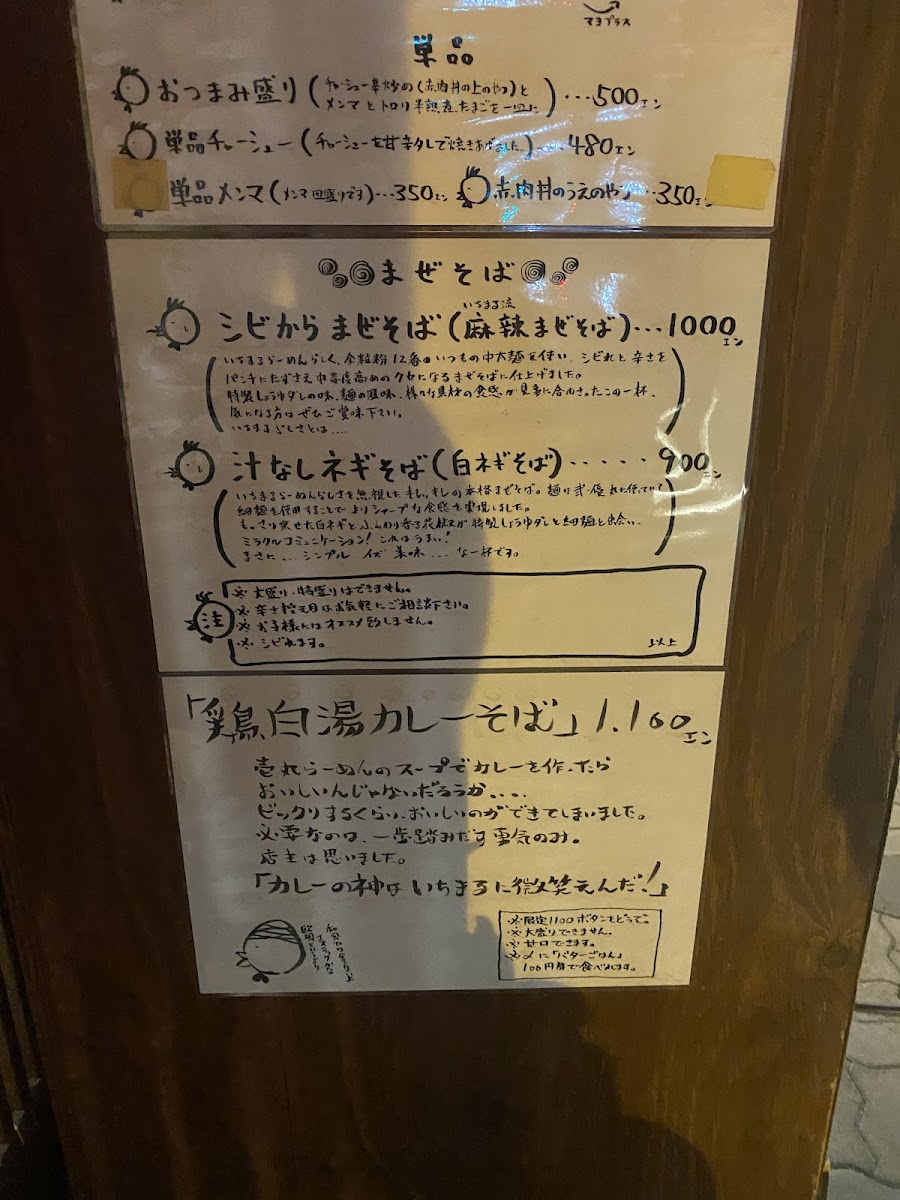 たまプラス
単品
おつまみ盛り(チャーシュー辛炒め(赤肉丼の上のやつ)と
メンマとトロリ半熟煮たまごを一皿に)…500エン
単品チャーシュー(チャーシューを甘辛タレで焼きあげました)…480エン
単品メンマ(メンマ皿盛りです)…350エン 赤肉丼のうえのやつ…350エン
まぜそば
いちまる流
シビからまぜそば(麻辣まぜそば)…1000エン
いちまるらーめんらしく、全粒粉12番のいつもの中太麺を使い、シビれと辛さを
パンチにたずさえ中毒度高めのクセになるまぜそばに仕上げました。
特製しょうゆダレの味、麺の風味、様々な具材の食感が見事に合わさったこの一杯、
気になる方はぜひご賞味下さい。
いちまるらしさとは……
汁なしネギそば(白ネギそば)‥‥‥900エン
いちまるらーめんらしさを無視した、キレッキレの本格まぜそば。麺は
細麺を使用することでよりシャープな食感を実現しました。
もっさり乗せた白ネギとふんわり香る花椒が特製しょうゆダレと細麺と出会い、
ミラクルコミュニケーション!これはうまい!
まさに…シンプル イズ 美味…な一杯です。
注
※大盛り・特盛りはできません。
※辛さ控え目はお気軽にご相談下さい。
※お子様にはオススメ致しません。
※シビれます。
以上
「鶏白湯カレーそば」1.100エン
壱丸らーめんのスープでカレーを作ったら
おいしいんじゃないだろうか....
ビックリするくらいおいしいのができてしまいました。
必要なのは、一歩踏みだす勇気のみ。
店主は思いました。
「カレーの神はいちまるに微笑えんだ!」
※限定1100ボタンをどうぞ。
※大盛りできません。
※甘口できます。
※〆に「バターごはん」
100円引で食べれます。